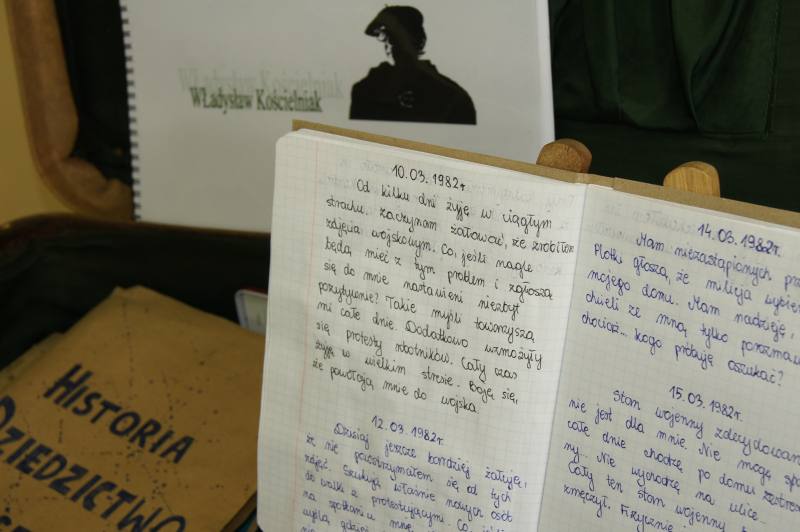 Władysław Kościelniak
Władysław Kościelniak
10.03.1982r.
Od kilku dni żyję w ciągłym
strachu. Zaczynam żałować, że zrobiłem
zdjęcia wojskowym. Co, jeśli nagle
będą mieć z tym problem i zgłoszą
się do mnie nastawieni niezbyt
pozytywnie? Takie myśli towarzyszą
mi całe dnie. Dodatkowo wzmożyły
się protesty robotników. Cały czas
żyję w wielkim stresie. Boję się,
że powołają mnie do wojska.
12.03.1982r.
Dzisiaj jeszcze bardziej żałuję,
że nie powstrzymałem się od tych
zdjęć. Szukają właśnie nowych osób
do walki z protestującymi. Co, jeśli
na spotkaniu mnie
wyślą gdzieś
14.03.1982r.
Mam niezastąpionych
Plotki głoszą, że milicja
mojego domu. Mam nadzieję,
chcieli ze mną tylko
chociaż... kogo próbuję oszukać?
15.03.1982r.
Stan wojenny
nie jest dla mnie. Nie mogę
całe dnie chodzę po domu
ny. Nie wychodzę na ulicę
Cały ten stan wojenny
zmęczył. Fizycznie
HISTORIA
DZIEDZICTWO